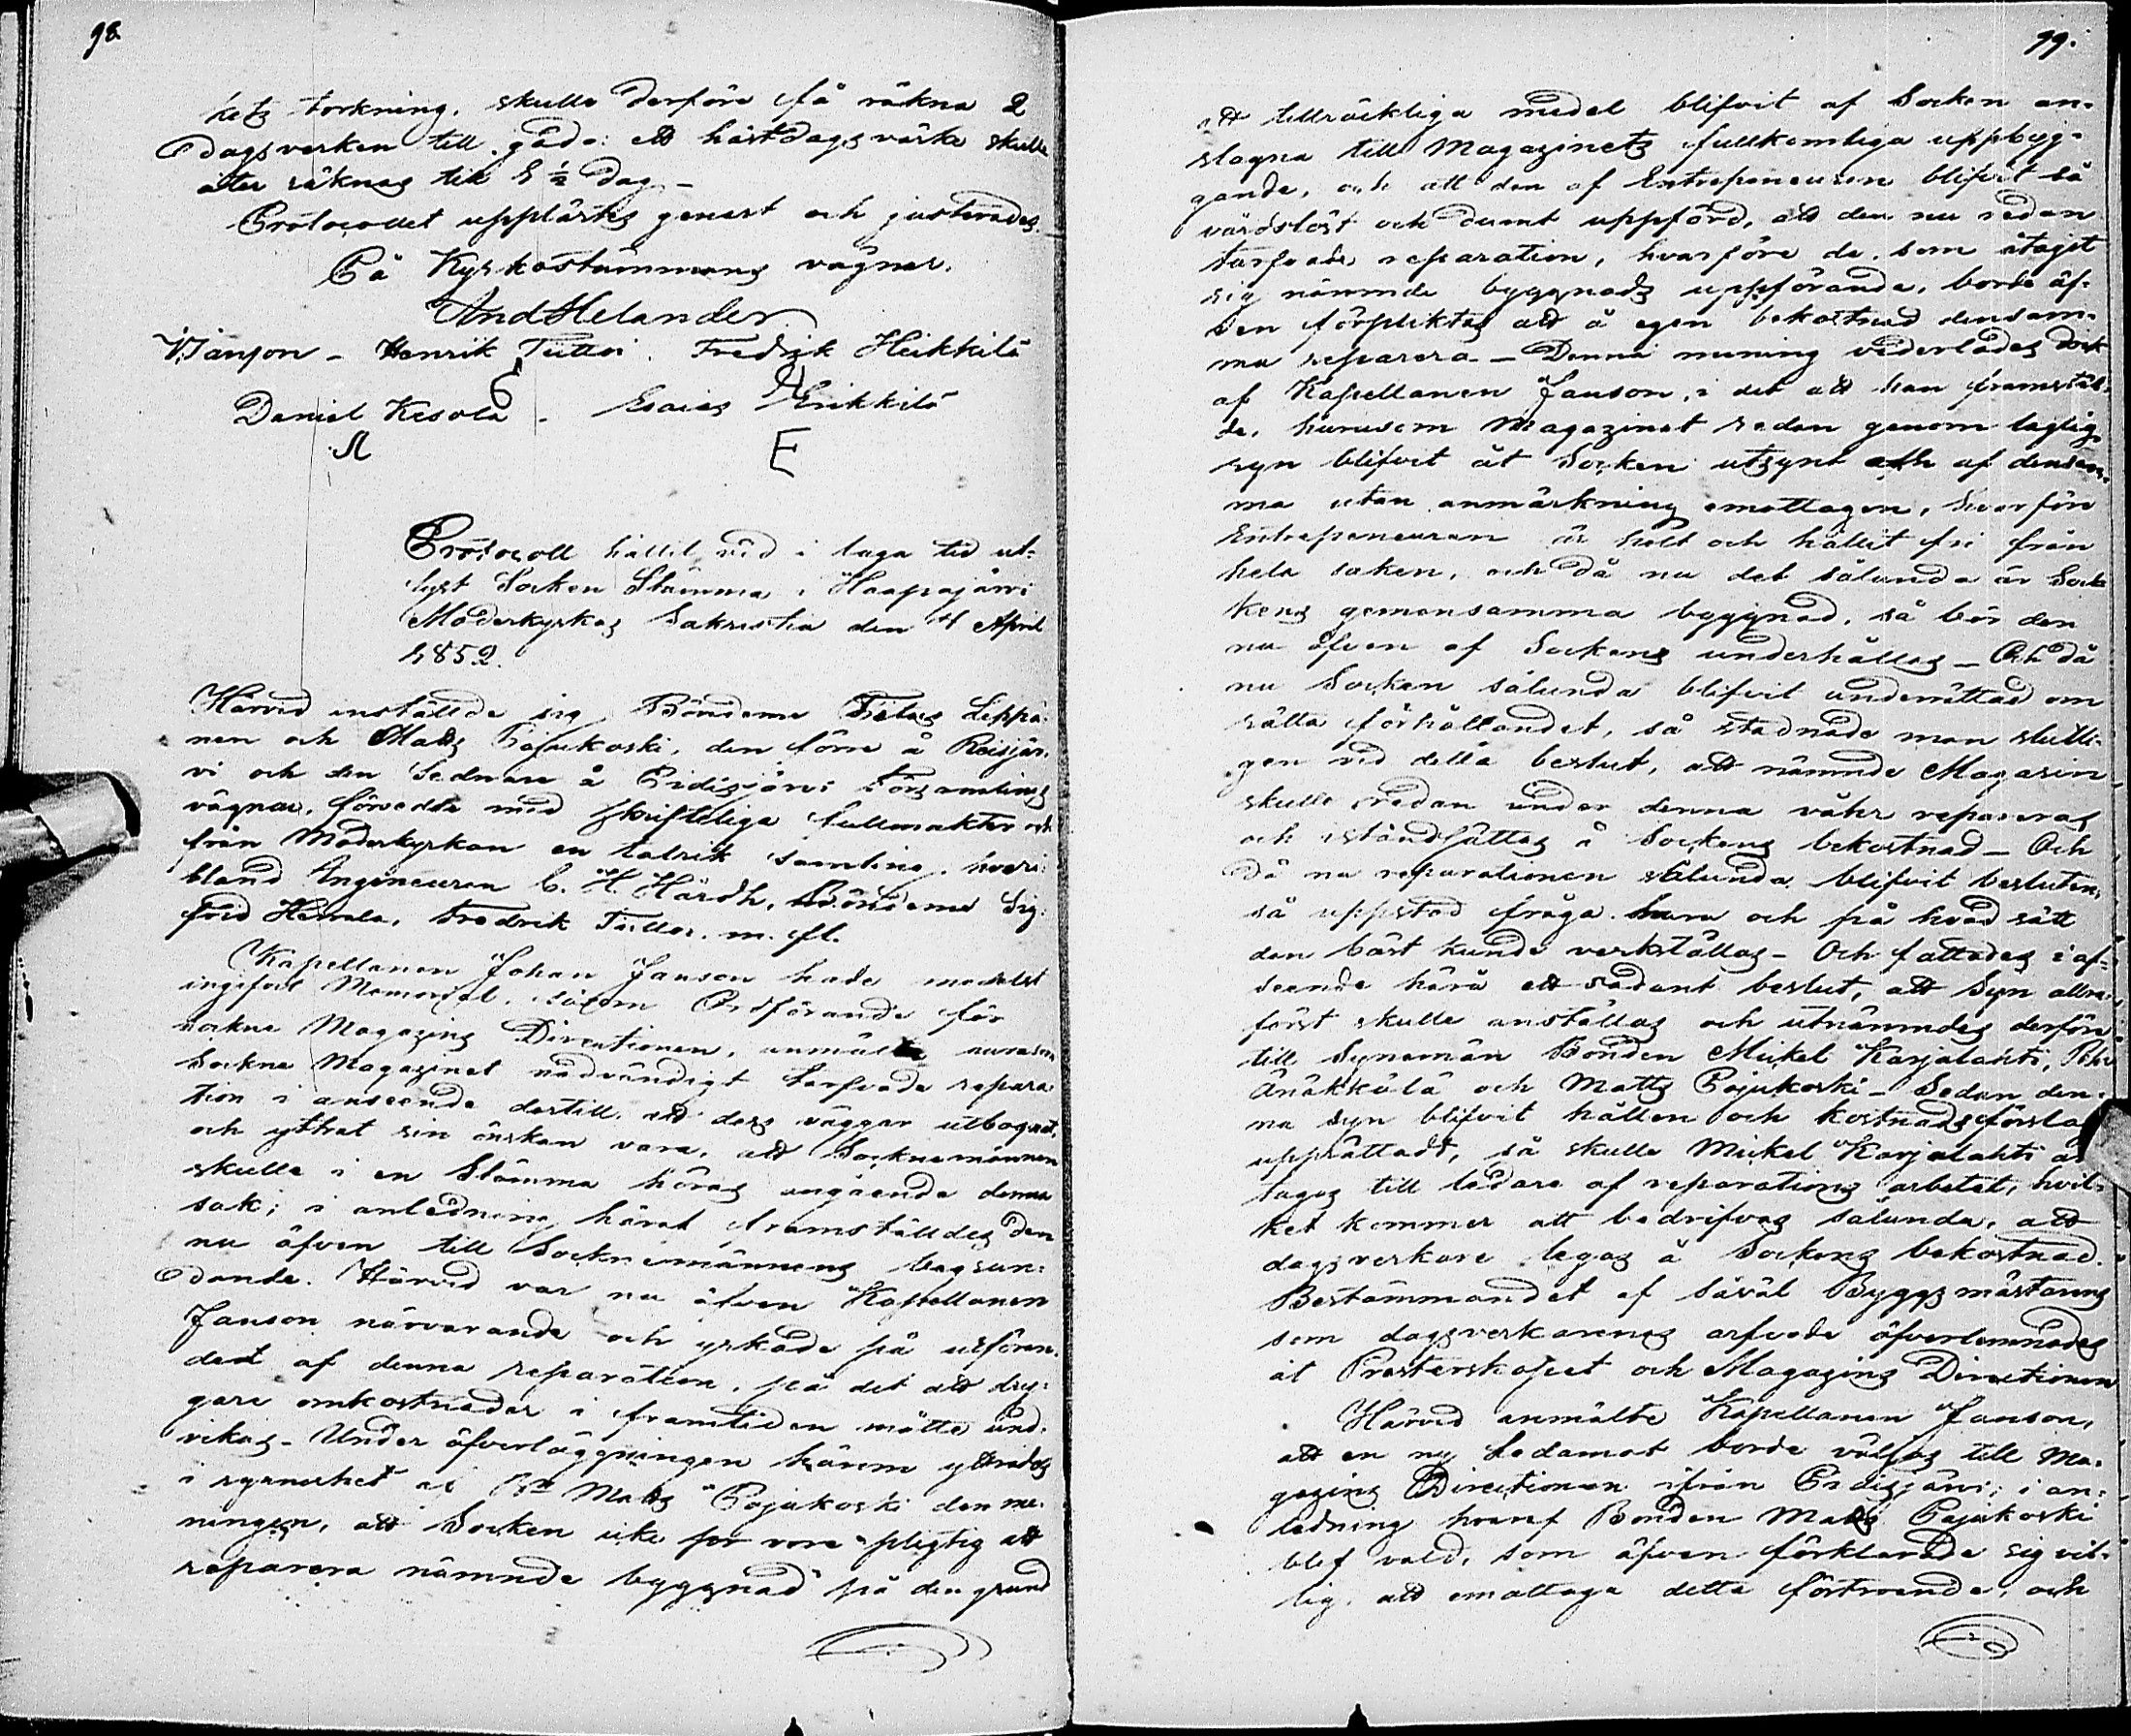 98.
hets torkning. skulle derföre få räkna 2
dagsverken till goda: ett hästdagsvärke skulle
åter räknas till 1 ½ dag –
Protocollet upplästes genast och justerades.
På Kyrkostämmans vägnar.
And Helander
Janson – Henrik Tuttoi. Fredrik Heikkilä
Daniel Kesola – Esaias Erikkilä
E
Protocoll hållit vid i laga tid ut-
lyst Socken Stämma i Haapajärvi
Moderkyrkas Sakristia den 4 April
1852.
Härvid inställde sig Bönderne Leppä-
nen och Matts Pajukoski, den förre å Reisjär-
vi och den sednare å Pidisjärvi Församlings
vägnar, försedde med skrifteliga fullmakter och
från Moderkyrkan en talrik samling, hvari-
bland Ingenieuren C. H. Hårdh, Bönderne Sig-
frid Fredrik m. fl.
Kapellanen Johan Janson hade medelst
ingifvet Memorial, såsom Ordförande för
sockne Magazins Directionen, anmält huruson
Sockne Magazinet nödvändigt tarfvade repara
tion i anseende dertill att dess väggar utbognat,
och yttrat sin önskan vara, att Socknemännen
skulle i en Stämma höras angående denna
sak; i anledning häraf framställdes den
nu äfven till Socknemännens begrun-
dande. Härvid var nu äfven Kapellanen
Janson närvarande och yrkade på utföran-
det af denna reparation, på det att dry-
gare omkostnader i framtiden måtte und-
vikas – Under öfverläggningen härom yttrades
i synnerhet af Matts Pajukoski den me-
ningen, att Socken icke vore pligtig att
reparera nämnde byggnad på den grund
99.
att tillräckliga medel blifvit af Socken an-
slagna till Magazinets fullkomliga uppbyg-
gande, och att den af Entrepeneuren blifvit så
vårdslöst och dumt uppförd, att den nu redan
tarfvade reparation, hvarföre de som åtagit
sig nämnde byggnads uppförande, borde äf-
ven förpliktas att å egen bekostnad densam-
ma reparera – Denna mening vederlades dock
af Kapellanen Janson, i det att han framstäl-
de, hurusom Magazinet redan genom laglig
syn blifvit åt Socken utsynt och af densam-
ma utan anmärkning emottagen, hvarföre
Entrepeneuren är helt och hållit fri från
hela saken, och då nu det sålunda är Soc-
kens gemensamma byggnad, så bör den
nu äfven af Sockens underhållas – Och då
nu Socken sålunda blifvit underrättad om
rätta förhållandet, så stadnade man slutli-
gen vid detta beslut, att nämnde Magasin
skulle redan under denna våhr repareras
och iståndsättas å Sockens bekostnad – Och
då nu reparationen sålunda blifvit besluten,
så uppstod fråga huru och på hvad sätt
den bäst kunde verkställas – Och fattades i af-
seende härå ett sådant beslut, att Syn allra-
först skulle anställas och utnämndes derföre
till Synemän Bonden Mickel Karjalahti, Pehr
Änäkkälä och Matts Pajukoski – Sedan den-
na syn blifvit hållen och kostnadsförslag
upprättadt, så skulle Mickel Karjalahti an-
tagas till ledare af reparations arbetet, hvil-
ket kommer att bedrifvas sålunda, att
dagsverkare legas å Sockens bekostnad.
Bestämmandet af såväl Byggmästarens
som dagsverkarenes arfvode öfverlemnades
åt Presterskapet och Magazins Directionen
Härvid anmälte Kapellanen Janson,
att en ny Ledamot borde väljas till Ma-
gazins Directionen ifrån Pidisjärvi; i an-
ledning hvaraf Bonden Matts Pajukoski
blef vald, som äfven förklarade sig vil-
lig att emottaga detta förtroende, och